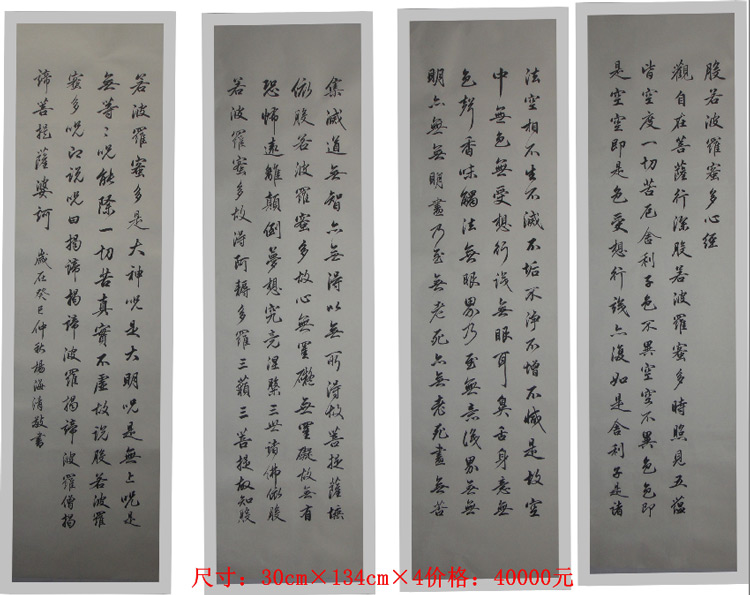 般若波羅蜜多心經
觀自在菩薩行深般若波羅蜜多時照見五蘊
皆空度一切苦厄舍利子色不異空空不異色色即
是空空即是色受想行識亦復如是舍利子是諸
法空相不生不滅不垢不淨不增不減是故空
中無色無受想行識無眼耳鼻舌身意無
色聲香味觸法無眼界乃至無意識界無無
明亦無無明盡乃至無老死亦無老死盡無苦
集滅道無智亦無得以無所得故菩提薩埵
依般若波羅蜜多故心無罣礙無罣礙故無有
恐怖遠離顛倒夢想究竟涅槃三世諸佛依般
若波羅蜜多故得阿耨多羅三藐三菩提故知般
若波羅蜜多是大神呪是大明呪是無上呪是
無等々呪能除一切苦真實不虛故說般若波羅
蜜多呪即說呪曰揭諦揭諦波羅揭諦波羅僧揭
諦菩提薩婆訶 歲在癸巳仲秋楊海清敬書
尺寸：30cm×134cm×4价格：40000元